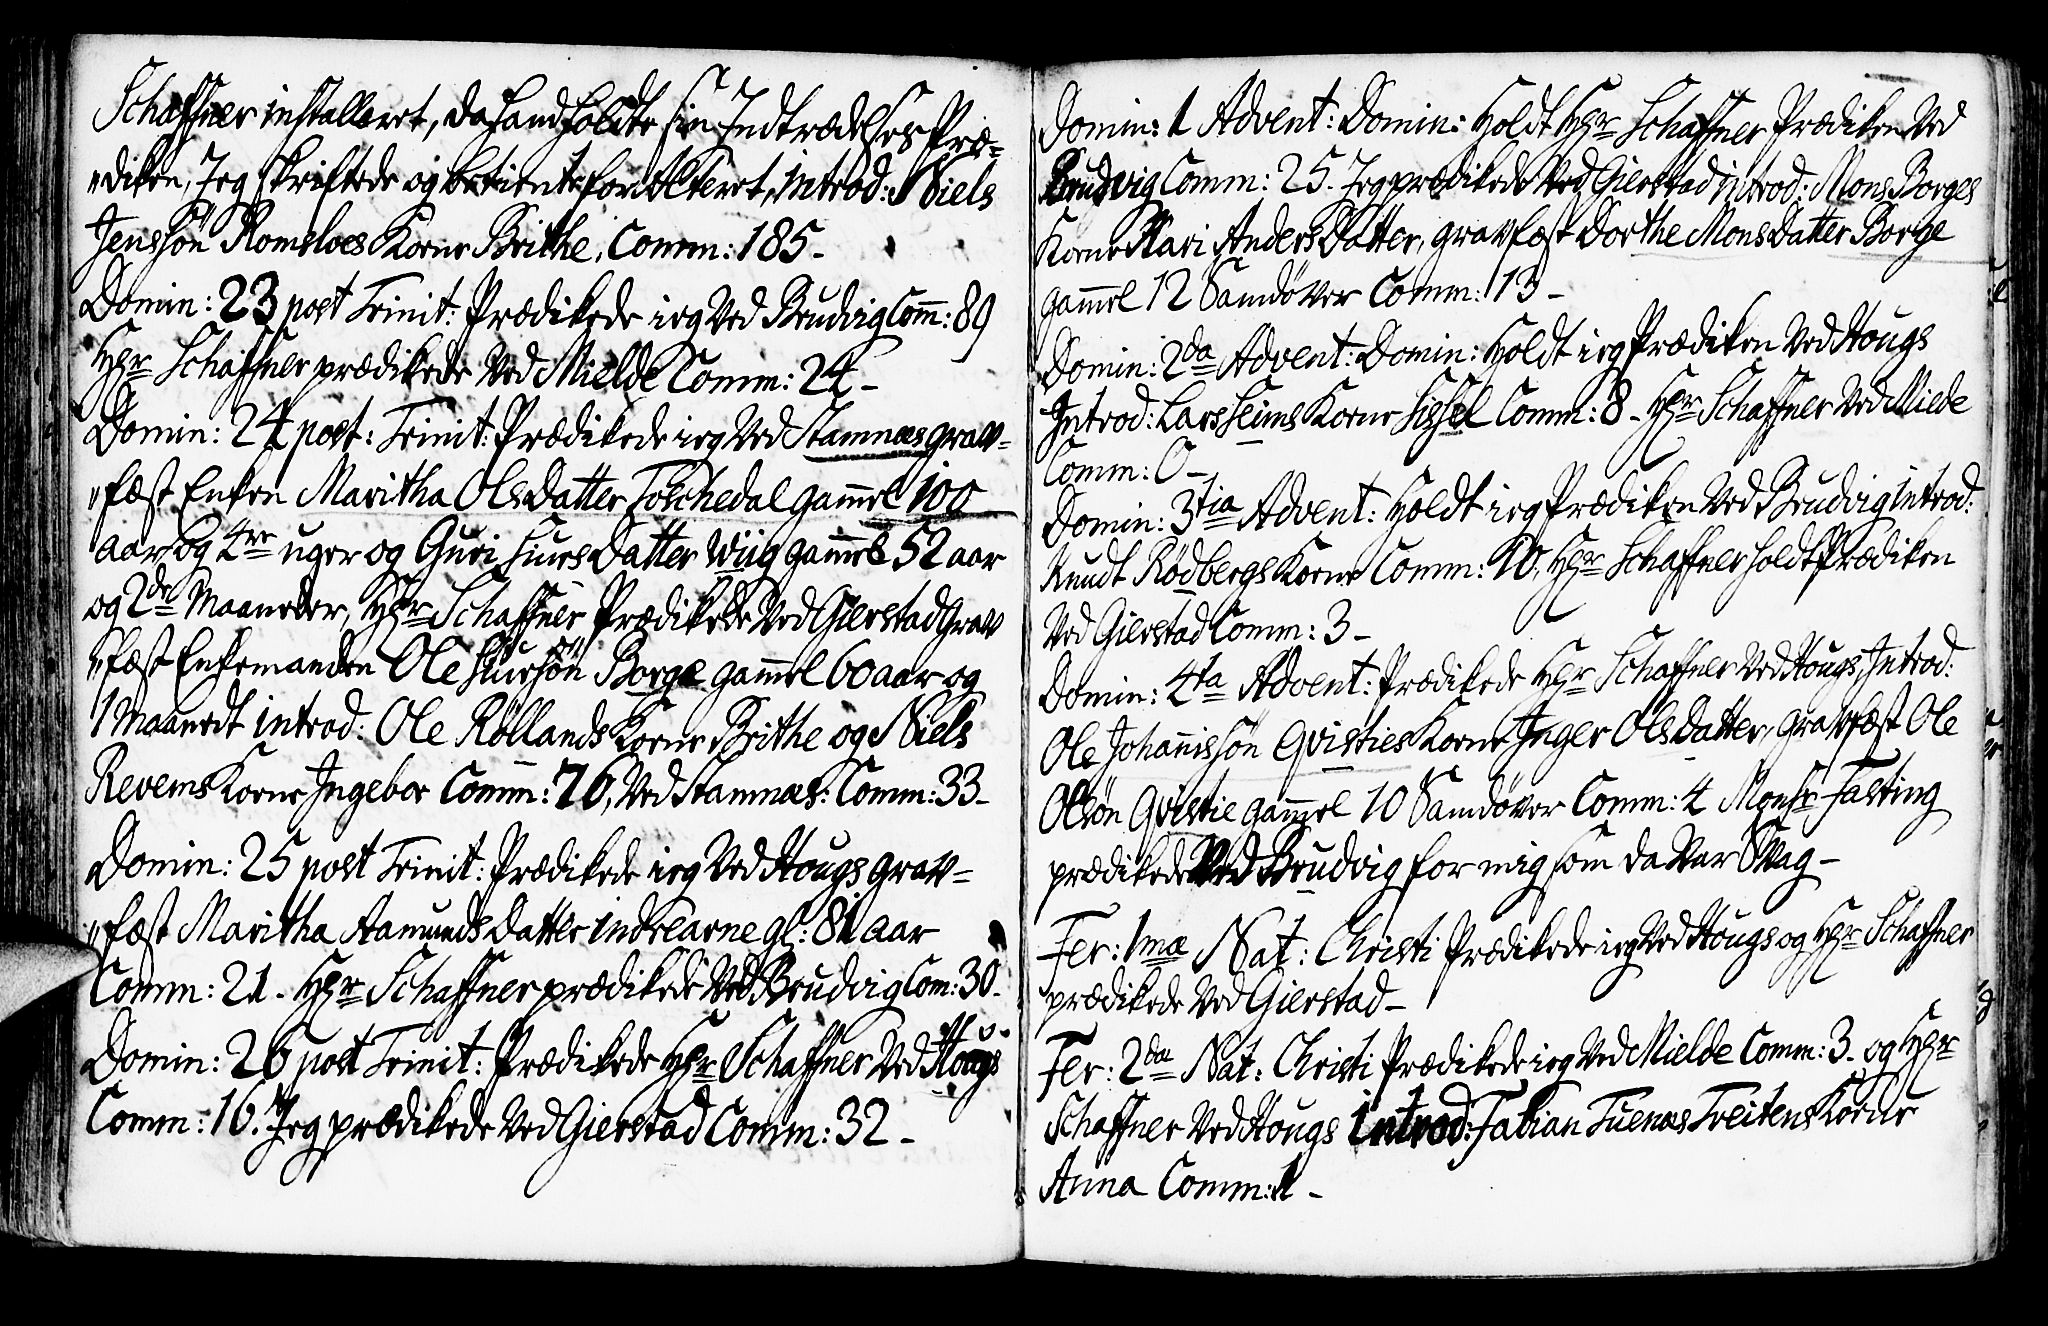 Schaffner installeret, da hand holdte sin Indtrædelses Præ=
"diken, Jeg skriftede og betiente for Alteret, introd: Niels
Jenssøn Romsloes Kone Brithe, Comm: 185 -
Domin: 23 post Trinit: Prædikede ieg Ved Brudvig Com̄: 89
Hr Schaffner prædikede Ved Mielde Comm: 24 -
Domin: 24 post: Trinit: Prædikede ieg Ved Stamnæs grav=
"fæst Enken Maritha Ols Datter Toschedal gam̄el 100
aar og 4re uger og Guri Siurs Datter Wiig gam̄el 52 aar
og 2de Maaneder, Hr Schaffner Prædikede Ved Gierstad Grav
"fæst Enkemanden Ole Siursøn Borge gam̄el 60 aar og
1 Maanedt introd: Ole Røllands Kone Brithe og Niels
Revems Kone Ingebor Comm: 76, Ved Stamnæs: Comm: 33 -
Domin: 25 post Trinit: Prædikede ieg Ved Hougs grav=
"fæst Maritha Aamunds Datter indre arne gl: 81 aar
Comm: 21 - Hr Schaffner prædikede Ved Brudvig Com: 30 -
Domin: 26 post Trinit: Prædikede Hr Schaffner Ved Hougs
Comm: 16. Jeg prædikede Ved Gierstad Comm: 32 -
Domin: 1 Advent: Domin: Holdt Hr Schaffner Prædiken Ved
Brudvig Comm: 25. Jeg prædikede Ved Gierstad introd: Mons Borges
Kone Mari Anders Datter, gravfæst Dorthe Mons Datter Borge
gam̄el 12 Samdøver Comm: 13 -
Domin: 2da Advent: Domin: Holdt ieg Prædiken Ved Hougs
Introd: Lars Seims Kone Sissel Comm: 8 - Hr Schaffner Ved Mielde
Comm: 0 -
Domin: 3tia Advent: Holdt ieg Prædiken Ved Brudvig introd:
Knudt Rødbergs Kone Comm: 10, Hr Schaffner holdt Prædiken
Ved Gierstad Comm: 3 -
Domin: 4ta Advent: Prædikede Hr Schaffner Ved Hougs, Introd:
Ole Johan̄issøn Qvisties Kone Inger Ols Datter, gravfæst Ole
Olsøn Qvistie gam̄el 10 Samdøver Comm: 4 Monsr Fasting
prædikede Ved Brudvig for mig som da Var Svag -
Fer: 1mæ Nat: Christi Prædikede ieg Ved Hougs og Hr Schaffner
prædikede Ved Gierstad -
Fer: 2dæ Nat: Christi Prædikede ieg Ved Mielde Comm: 3 - og Hr
Schaffner Ved Hougs introd: Fabian Tuenæs Treitens Kone
Anna Comm: 1 -